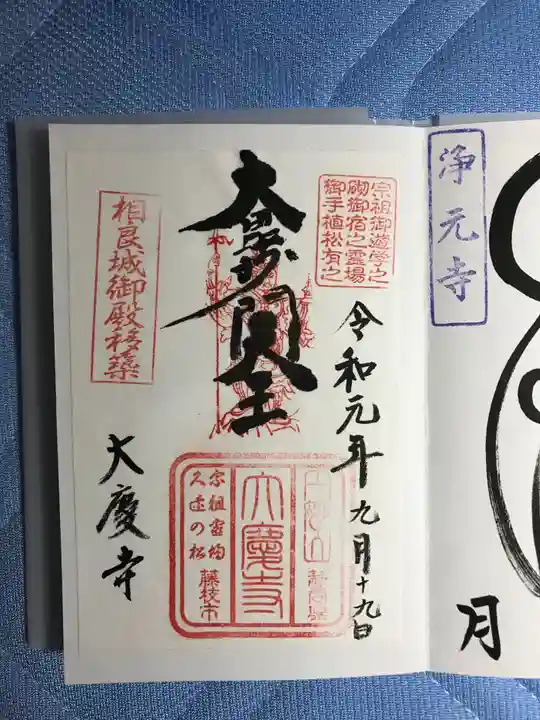 浄元寺
月
宗祖御遊学之
砌御宿之霊場
御手植松有之
令和元年九月十九日
大
閻王
相良城御殿移築
大慶寺
静岡県
大慶寺
藤枝市
宗祖当初
久遠の松